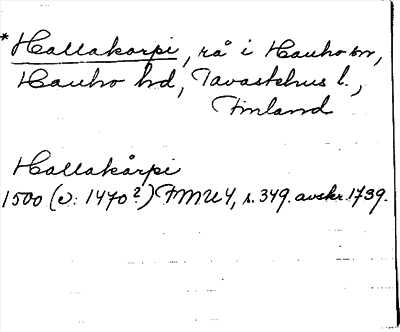 * Hallakorpi, rå i Hauho sn,
Hauho hd, Tavastehus l.,
Finland
Hallakårpi
1500 (v: 1470?) FMU 4, s. 349. avskr. 1739.